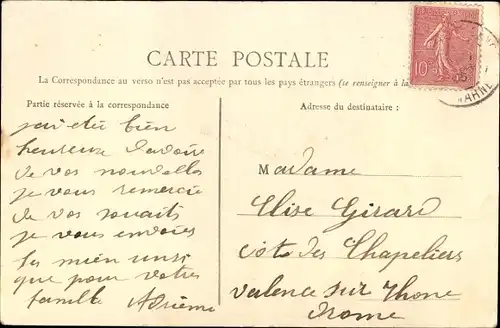 CARTE POSTALE
La Correspondance au verso n'est pas acceptée par tous les pays étrangers (se renseigner à la
Partie réservée à la correspondance
Adresse du destinataire :
jai étée bien
heureuse davoir
de vos nouvelles
je vous remercie
de vos souaits
je vous envoies
les mien unsi
que pour votre
famille Adrienne
Madame
Elise Girard
côte des Chapeliers
Valence sur Rhone
Drome
10
MARNE